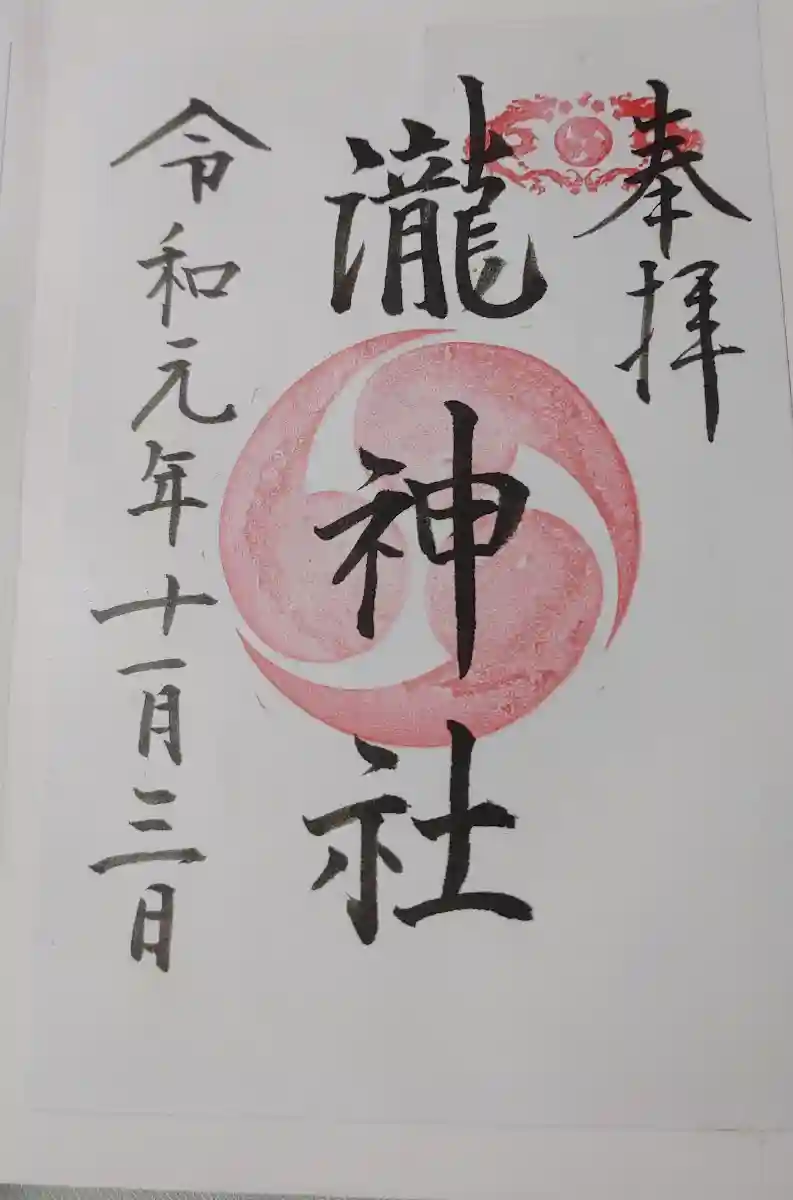 奉拝
瀧神社
令和元年十一月三日